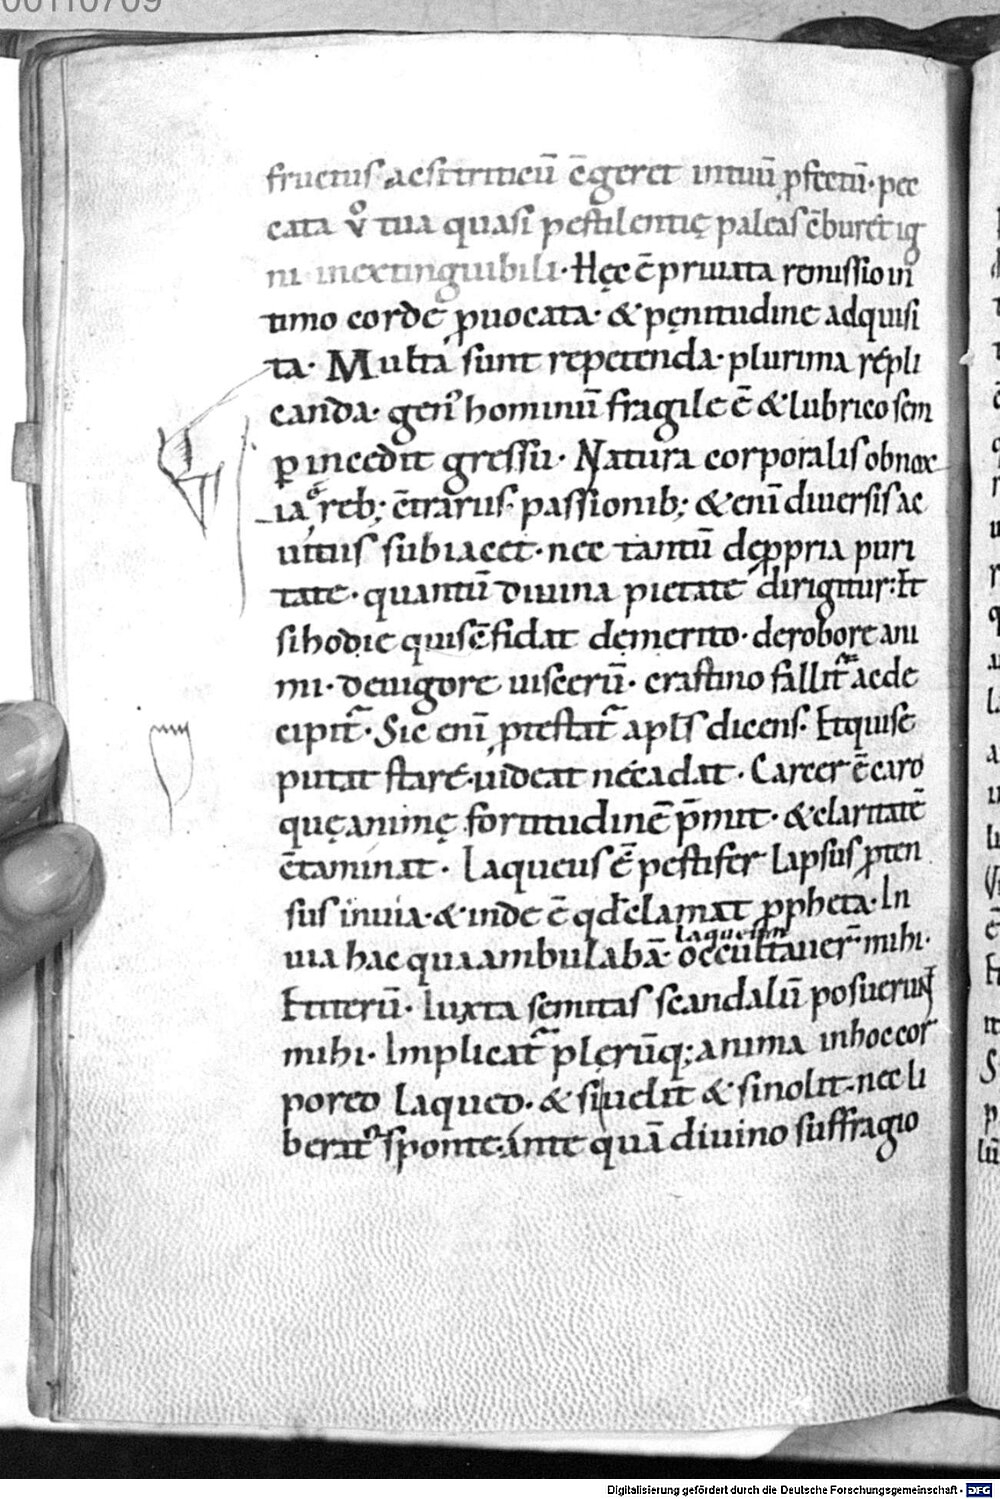 00110709
fructus ac si triticū c̄geret in tuū ꝓfectū · pec
cata v̊ tua quasi pestilentię paleas c̄buret ig
ni inextinguibili · Hęc ē priuata remissio in
timo corde ꝓuocata · & pęnitudine adquisi
ta · Multa sunt repetenda · plurima repli
canda · gen᾽ hominū fragile ē & lubrico sem
ꝑ incedit gressu · Natura corporalis obnox
ia reb; c̄trariis · passionib; & enī diuersis ac
uitiis subiacet · nec tantū dę ꝓpria puri
tate · quantū diuina pietate dirigitur : Et
si hodie quis c̄fidat dę merito · de robore ani
mi · de uigore uiscerū · crastino fallit᷑ ac de
cipit᷑ · Sic enī ꝓtestat᷑ apl̄s dicens · Et qui se
putat stare · uideat ne cadat · Carcer ē caro
quę animę fortitudinē p̄mit · & claritatē
c̄taminat · Laqueus ē pestifer lapsus ꝓten
sus in uia · & inde ē qd̄ clamat ꝓpheta · In
uia hac qua ambulabā · occultauer᷑ laqueum mihi ·
Et iterū · Iuxta semitas scandalū posuerunt
mihi · Implicat᷑ plęrūq; anima in hoc cor
poreo laqueo · & si uelit & si nolit · nec li
berat᷑ sponte · ante quā diuino suffragio
Digitalisierung gefördert durch die Deutsche Forschungsgemeinschaft - DFG